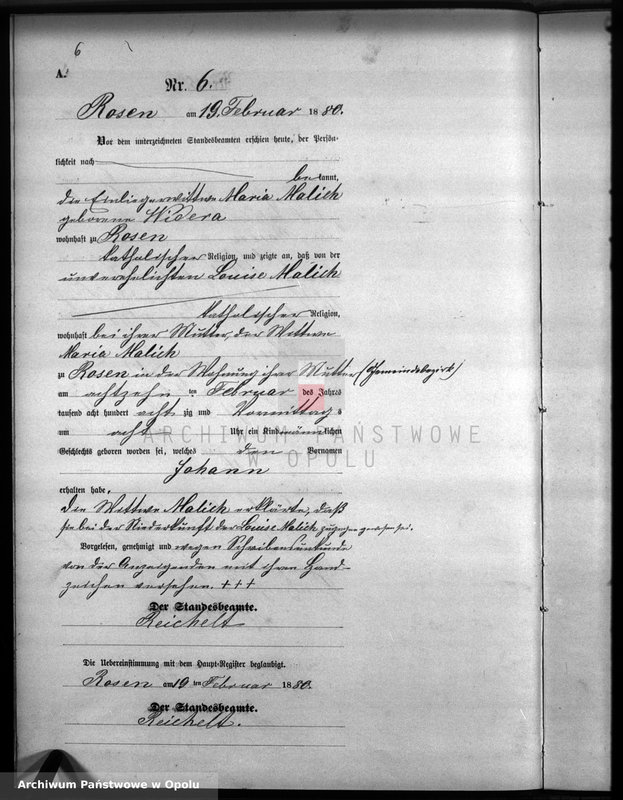 6
A.
Nr. 6.
Rosen am 19. Februar 1880.
Vor dem unterzeichneten Standesbeamten erschien heute, der Persön-
lichkeit nach
bekannt,
die Einliegerwittwe Maria Malich
geborene Widera
wohnhaft zu Rosen
katholischer Religion, und zeigte an, daß von der
unverehelichten Louise Malich
katholischer Religion,
wohnhaft bei ihrer Mutter, der Wittwe
Maria Malich
zu Rosen in der Wohnung ihrer Mutter (Gemeindebezirk)
am achtzehn ten Februar des Jahres
tausend acht hundert achtzig und Vormittags
um acht Uhr ein Kind männlichen
Geschlechts geboren worden sei, welches den Vornamen
Johann
erhalten habe.
Die Wittwe Malich erklärte, daß
sie bei der Niederkunft der Louise Malich zugegen gewesen sei.
Vorgelesen, genehmigt und wegen Schreibensunkunde
von der Anzeigenden mit ihren Hand-
zeichen versehen. +++
Der Standesbeamte.
Reichelt
Die Uebereinstimmung mit dem Haupt-Register beglaubigt.
Rosen am 19 ten Februar 1880.
Der Standesbeamte.
Reichelt.
ARCHIWUM PAŃSTWOWE
W OPOLU
Archiwum Państwowe w Opolu